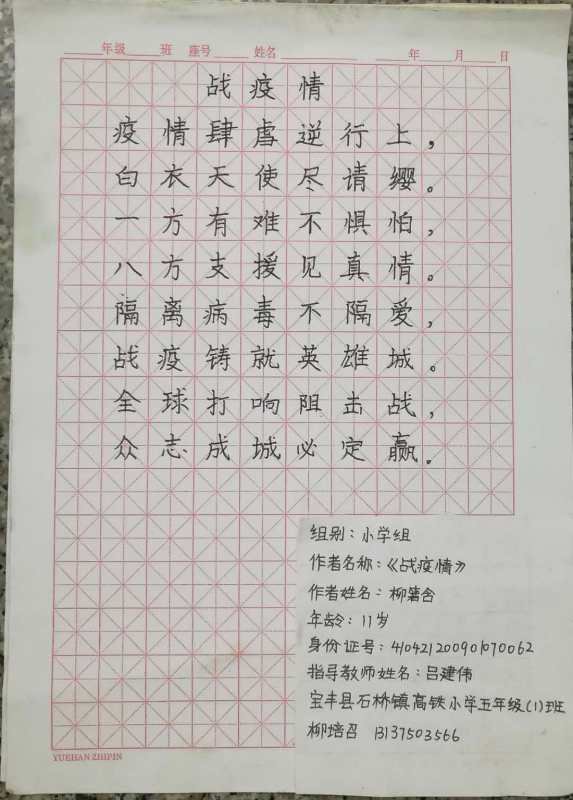 年级 班 座号 姓名 年 月 日
战疫情
疫情肆虐逆行上，
白衣天使尽请缨。
一方有难不惧怕，
八方支援见真情。
隔离病毒不隔爱，
战疫铸就英雄城。
全球打响阻击战，
众志成城必定赢。
组别：小学组
作者名称：《战疫情》
作者姓名：柳箫含
年龄：11岁
身份证号：410421200901070062
指导教师姓名：吕建伟
宝丰县石桥镇高铁小学五年级（1）班
柳培召 13137503566
YUEHAN ZHIPIN